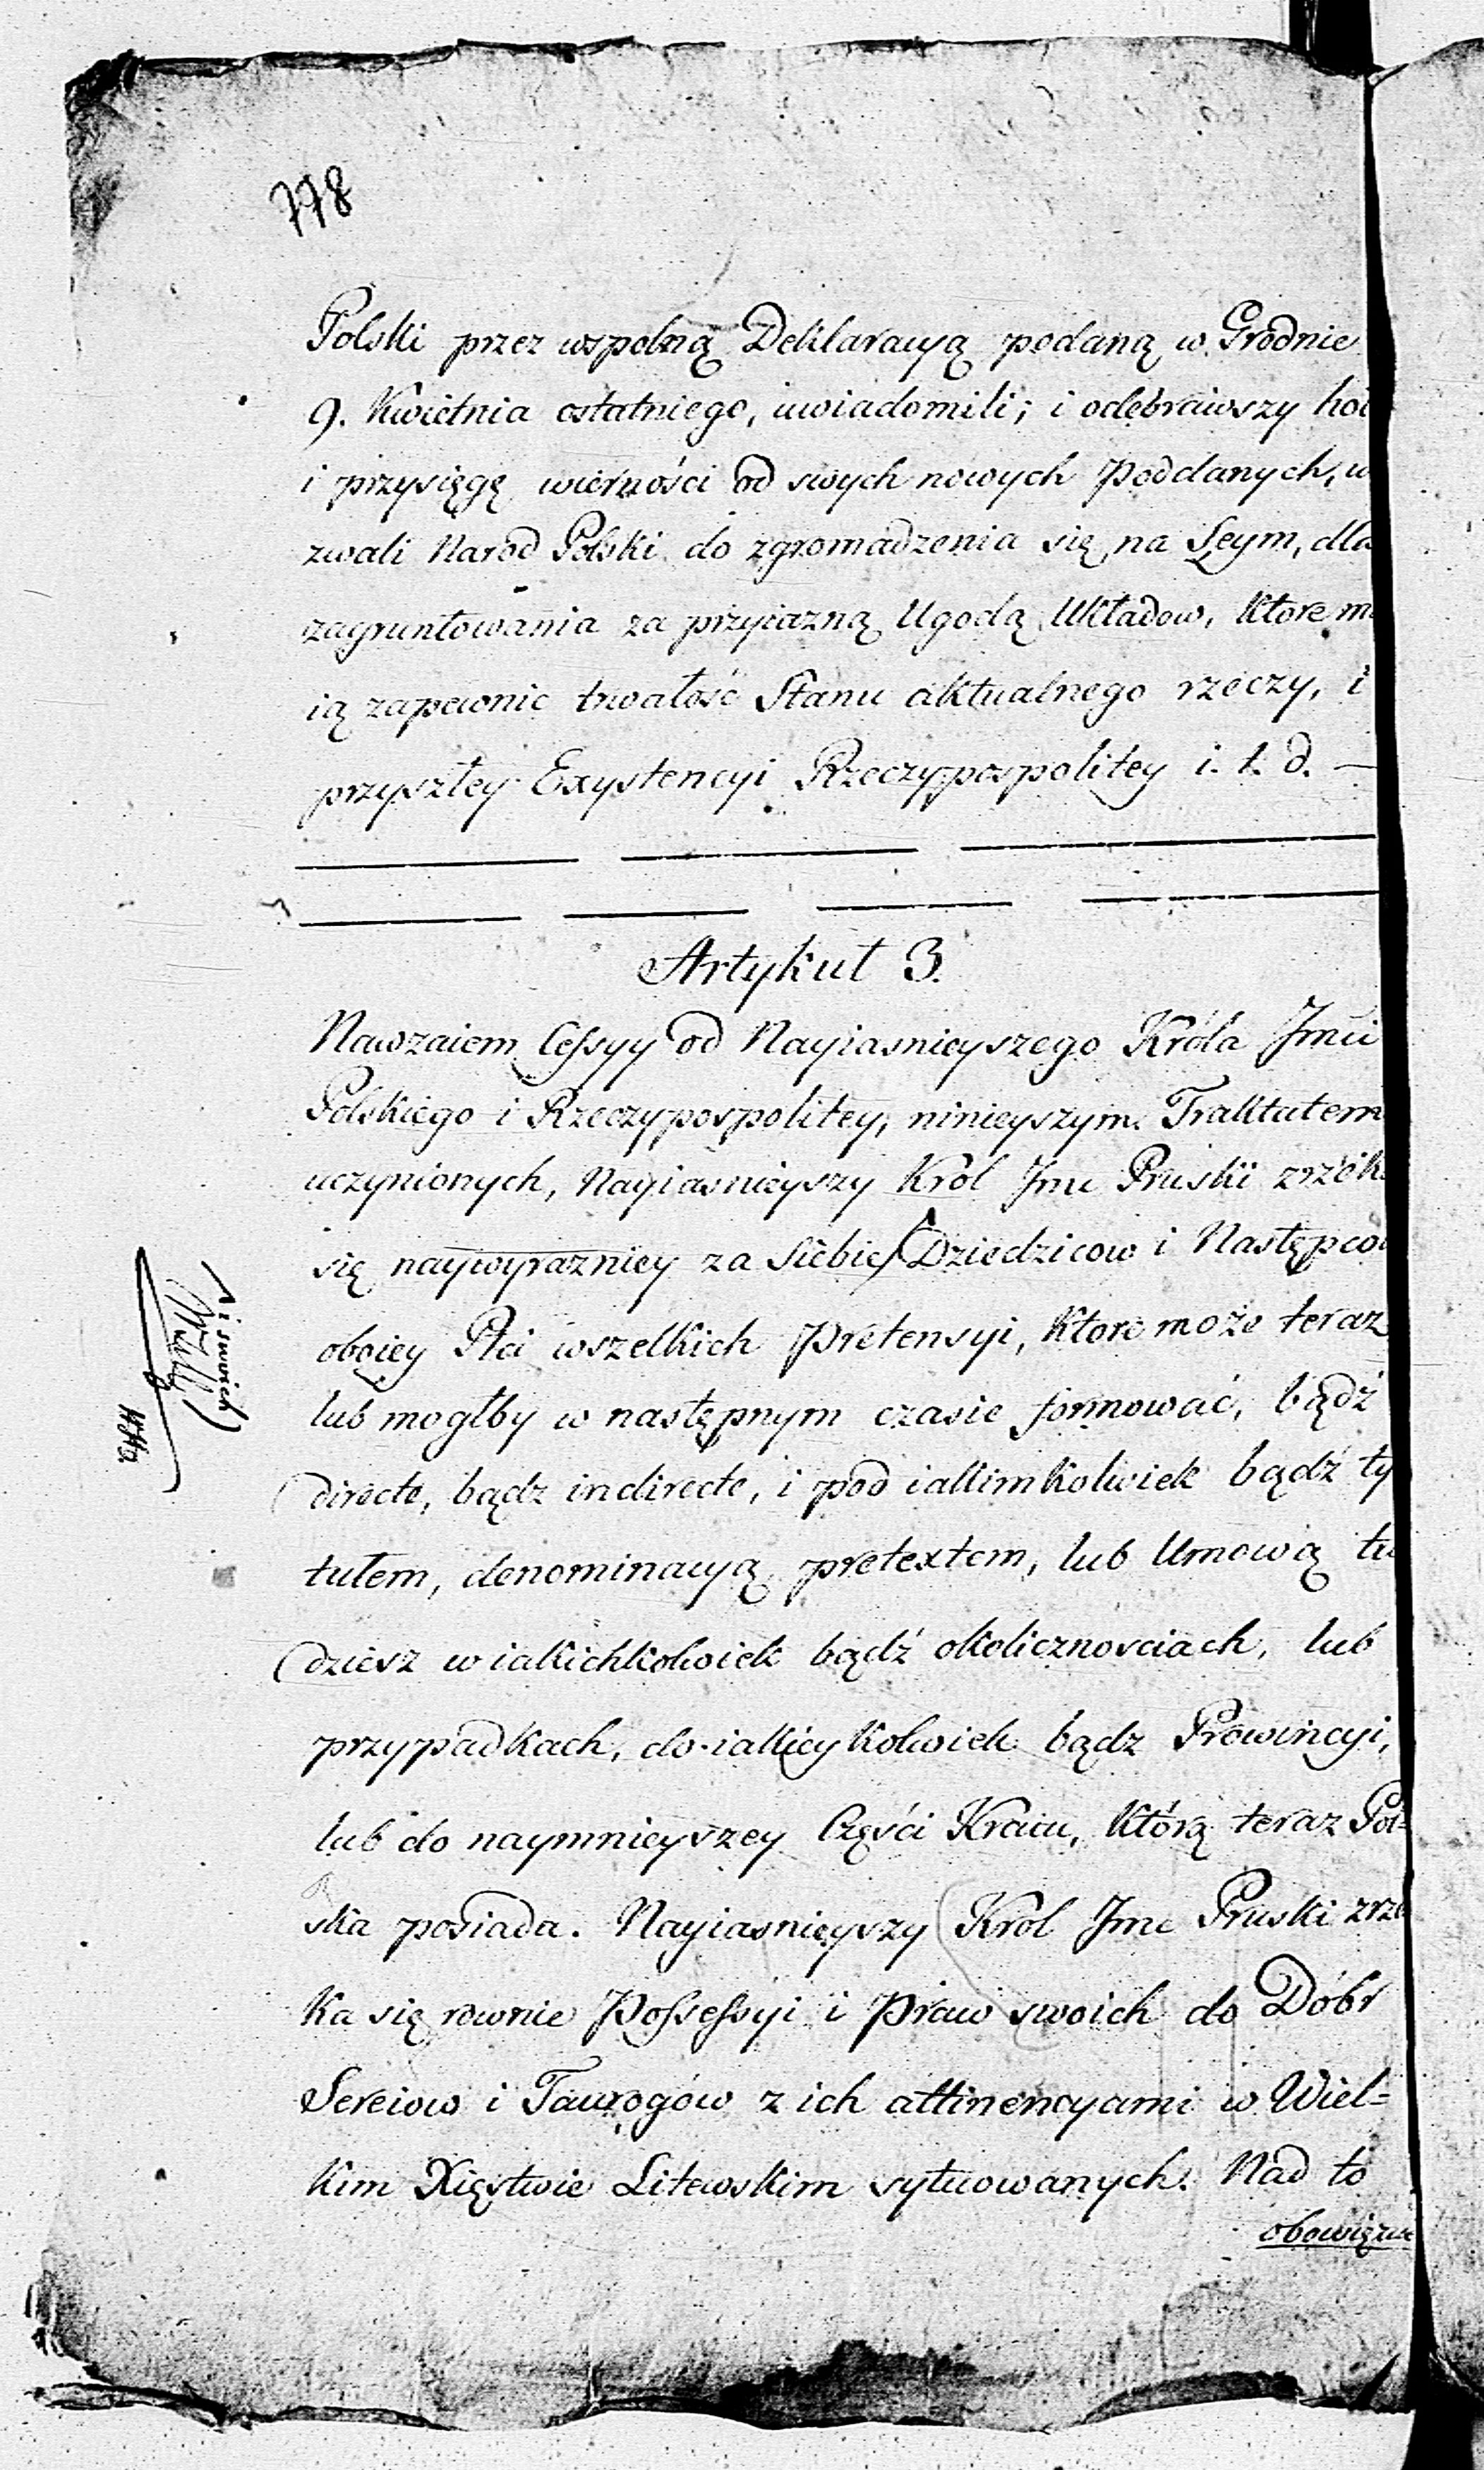 778
Polski przez wspolną Deklaracyą podaną w Grodnie
9. Kwietnia ostatniego, uwiadomili; i odebrawszy hoł
i przysięgę wierności od swych nowych Poddanych, w
zwali Narod Polski do zgromadzenia się na Seym, dla
zagruntowania za przyiazną Ugodą Układow, ktore ma
ią zapewnic trwałość Stanu aktualnego rzeczy, i
przyszłey Exystencyi Rzeczypospolitey i. t. d. —
Artykuł 3.
Nawzaiem Cessyy od Nayiasnieyszego Króla Jmci
Polskiego i Rzeczypospolitey, ninieyszym Traktatem
uczynionych, Nayiasnieyszy Król Jmc Pruski zrzek
się naywyrazniey za siebie Dziedzicow i Następców
oboiey Płci wszelkich Pretensyi, ktore może teraz
lub mogłby w następnym czasie formować, bądź
directe, bądz indirecte, i pod iakimkolwiek bądź ty
tułem, denominacyą pretextem, lub Umową tu
dziesz w iakichkolwiek bądź okolicznosciach, lub
przypadkach, do iakieykolwiek bądz Prowincyi,
lub do naymnieyszey Częśći Kraiu, którą teraz Pol-
ska posiada. Nayiasnieyszy Krol Jmc Pruski zrze
ka się rownie Possessyi i Praw swoich do Dóbr
Sereiow i Taurogów z ich attinencyami w Wiel=
kim Xięstwie Litewskim sytuowanych. Nad to
obowiązu
i swoich